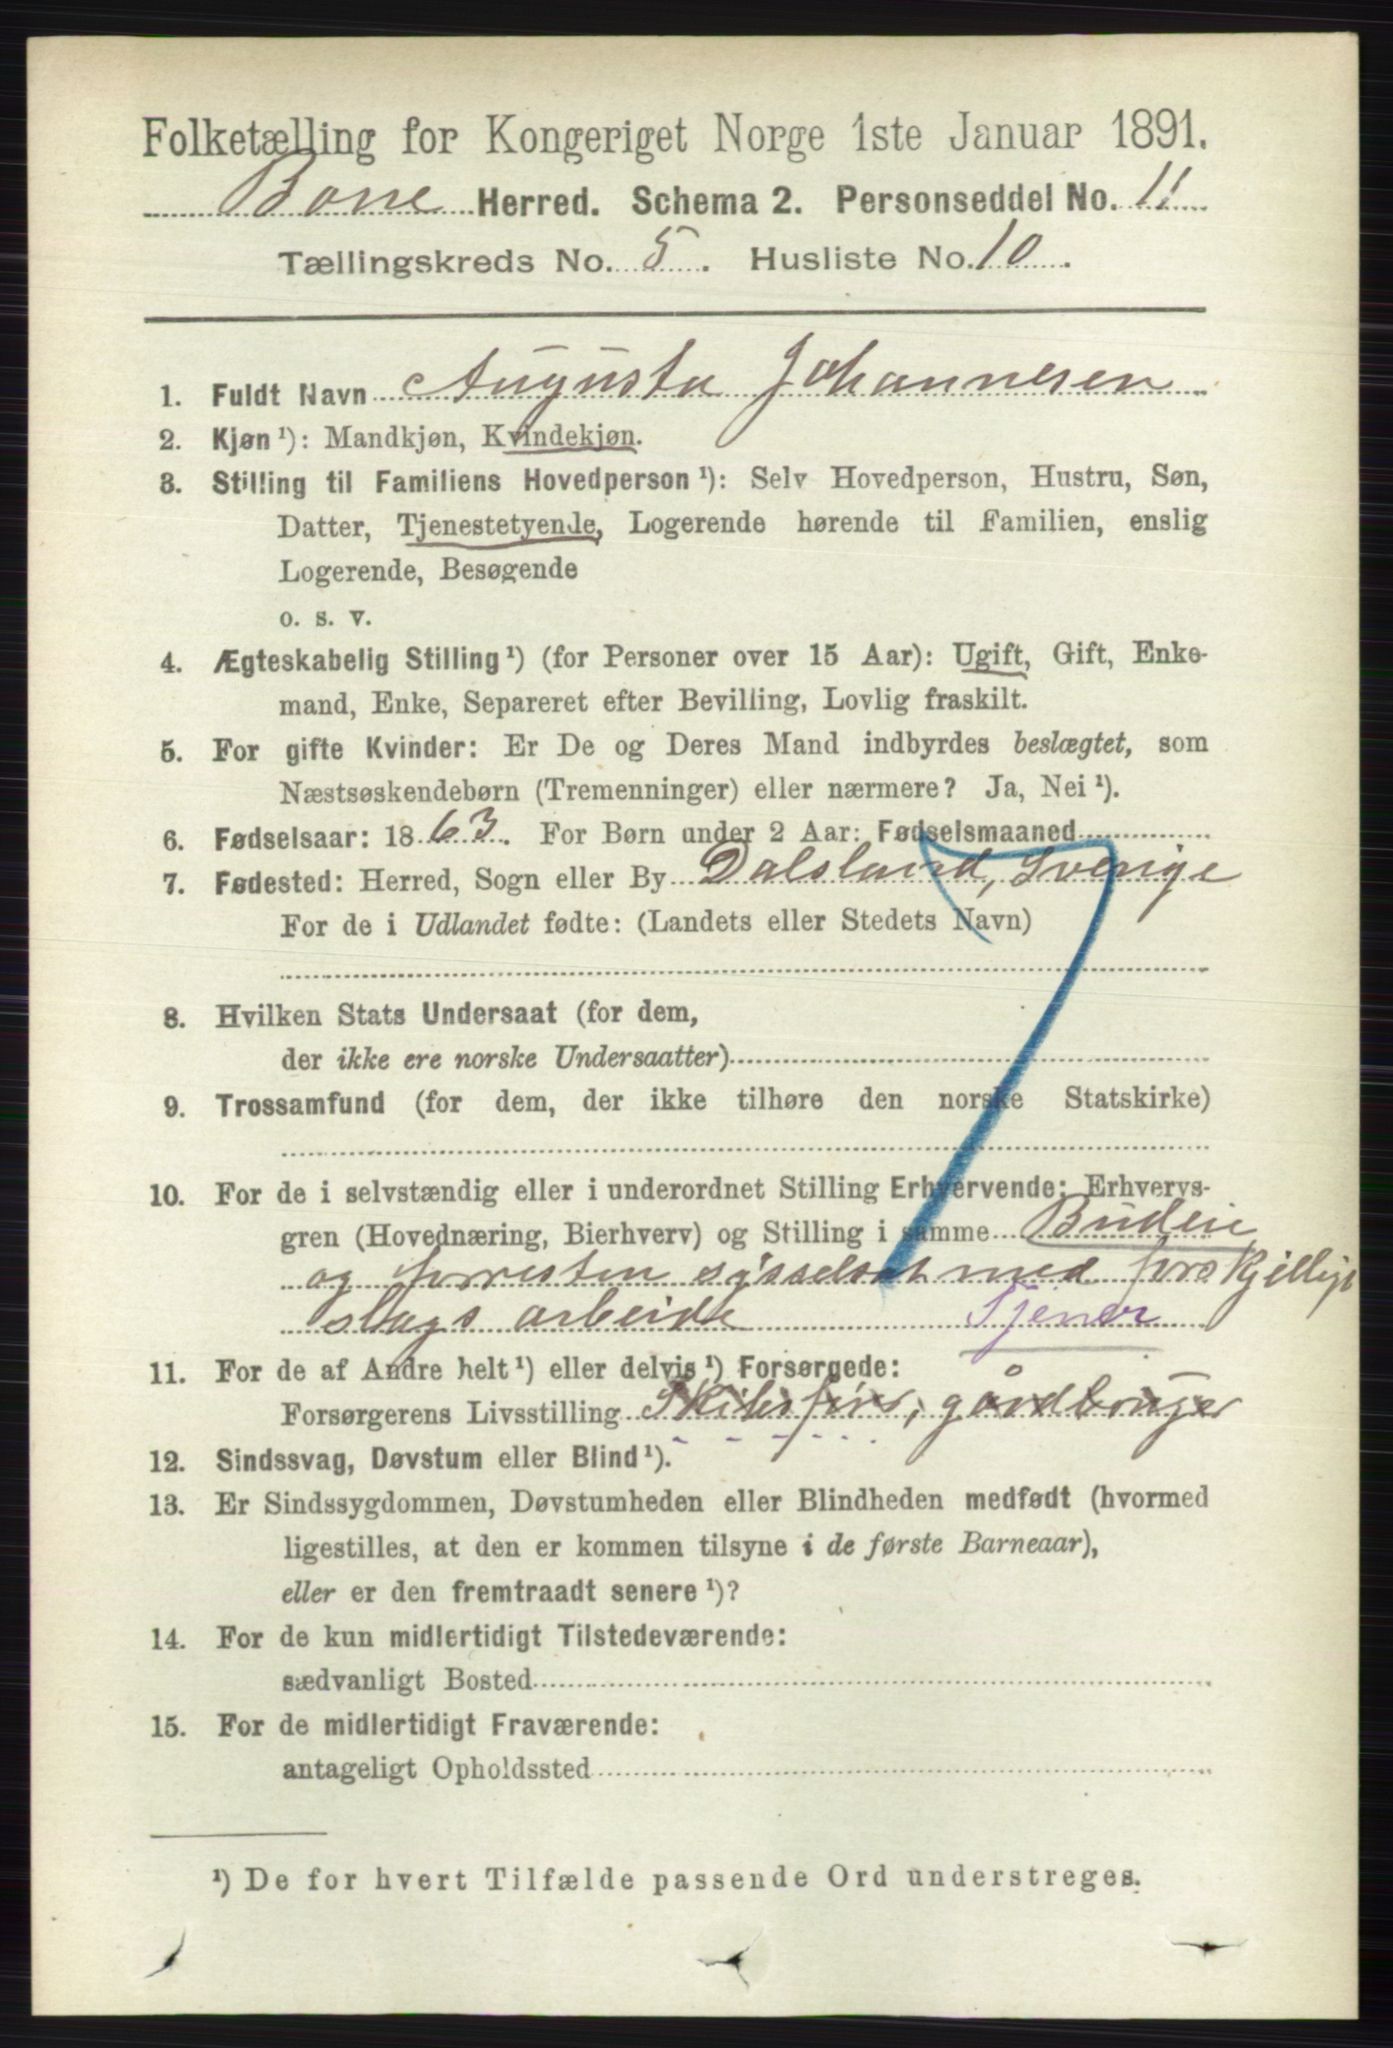 Folketælling for Kongeriget Norge 1ste Januar 1891.
Borre Herred. Schema 2. Personseddel No. 11
Tællingskreds No. 5. Husliste No. 10.
1. Fuldt Navn Augusta Johannesen
2. Kjøn¹): Mandkjøn, Kvindekjøn.
3. Stilling til Familiens Hovedperson¹): Selv Hovedperson, Hustru, Søn,
Datter, Tjenestetyende, Logerende hørende til Familien, enslig
Logerende, Besøgende
o. s. v.
4. Ægteskabelig Stilling¹) (for Personer over 15 Aar): Ugift, Gift, Enke-
mand, Enke, Separeret efter Bevilling, Lovlig fraskilt.
5. For gifte Kvinder: Er De og Deres Mand indbyrdes beslægtet, som
Næstsøskendebørn (Tremenninger) eller nærmere? Ja, Nei¹).
6. Fødselsaar: 1863. For Børn under 2 Aar: Fødselsmaaned
7. Fødested: Herred, Sogn eller By Dalsland, Sverige
For de i Udlandet fødte: (Landets eller Stedets Navn)
8. Hvilken Stats Undersaat (for dem,
der ikke ere norske Undersaatter)
9. Trossamfund (for dem, der ikke tilhøre den norske Statskirke)
10. For de i selvstændig eller i underordnet Stilling Erhvervende: Erhvervs-
gren (Hovednæring, Bierhverv) og Stilling i samme Budeie
og forresten sysselsat med forskjelligt
slags arbeide Tjener
11. For de af Andre helt¹) eller delvis¹) Forsørgede:
Forsørgerens Livsstilling Skibsfører, gårdbruger
12. Sindssvag, Døvstum eller Blind¹).
13. Er Sindssygdommen, Døvstumheden eller Blindheden medfødt (hvormed
ligestilles, at den er kommen tilsyne i de første Barneaar),
eller er den fremtraadt senere¹)?
14. For de kun midlertidigt Tilstedeværende:
sædvanligt Bosted
15. For de midlertidigt Fraværende:
antageligt Opholdssted
¹) De for hvert Tilfælde passende Ord understreges.